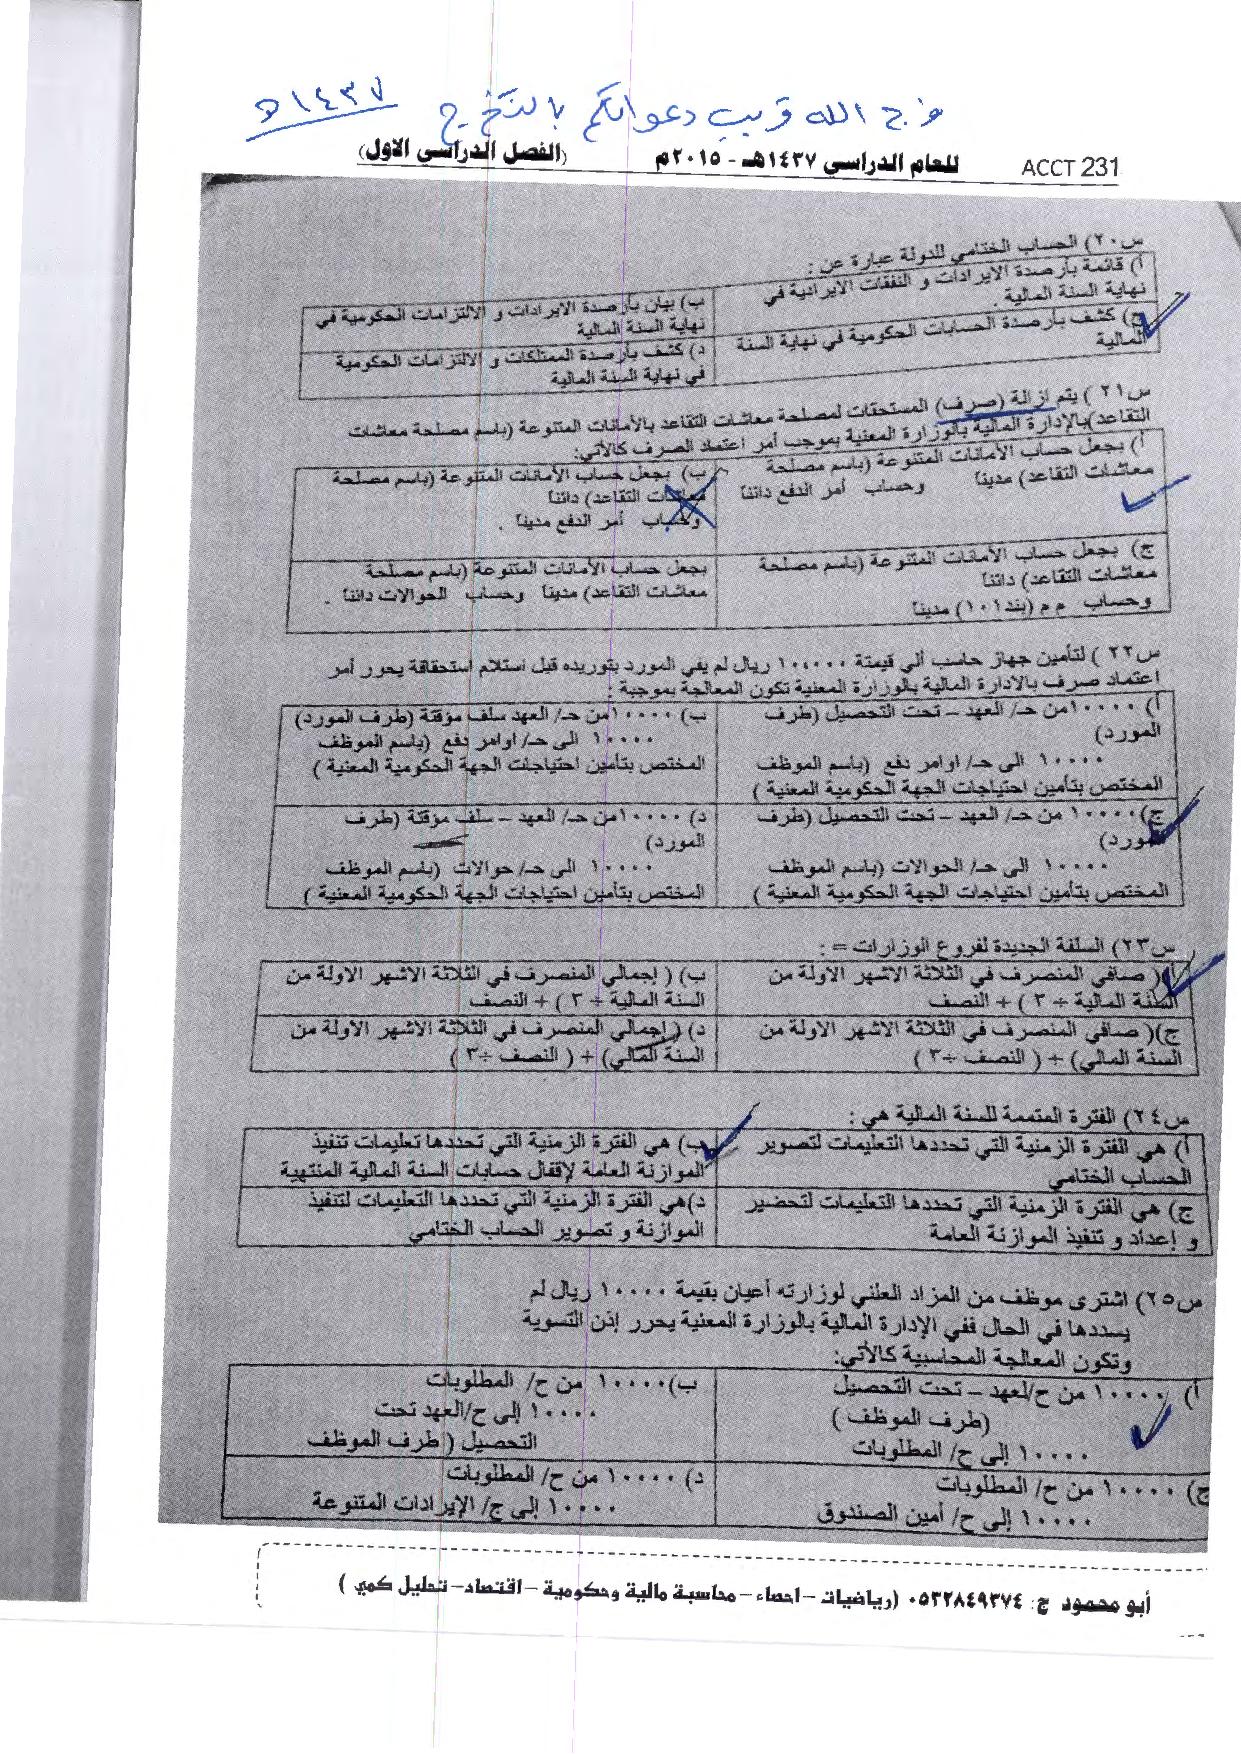 فرج الله قريب دعواتكم بالتخرج ١٤٣٧هـ
ACCT 231 للعام الدراسي ١٤٣٧هـ - ٢٠١٥م (الفصل الدراسي الاول)
س٢٠) الحساب الختامي للدولة عبارة عن :
أ) قائمة بأرصدة الايرادات و النفقات الايرادية في
نهاية السنة المالية .
ب) بيان بأرصدة الايرادات و الالتزامات الحكومية في
نهاية السنة المالية
ج) كشف بأرصدة الحسابات الحكومية في نهاية السنة
المالية
د) كشف بأرصدة الممتلكات و الالتزامات الحكومية
في نهاية السنة المالية
س٢١ ) يتم ازالة (صرف) المستحقات لمصلحة معاشات التقاعد بالأمانات المتنوعة (باسم مصلحة معاشات
التقاعد)بالإدارة المالية بالوزارة المعنية بموجب أمر اعتماد الصرف كالآتي:
أ) بجعل حساب الأمانات المتنوعة (باسم مصلحة
معاشات التقاعد) مديناً وحساب أمر الدفع دائناً
ب) بجعل حساب الأمانات المتنوعة (باسم مصلحة
معاشات التقاعد) دائناً
وحساب أمر الدفع مديناً .
ج) بجعل حساب الأمانات المتنوعة (باسم مصلحة
معاشات التقاعد) دائناً
وحساب م م (بند١٠١) مديناً
بجعل حساب الأمانات المتنوعة (باسم مصلحة
معاشات التقاعد) مديناً وحساب الحوالات دائناً .
س٢٢ ) لتأمين جهاز حاسب ألي قيمتة ١٠٠٠٠٠ ريال لم يفي المورد بتوريده قبل استلام استحقاقة يحرر أمر
اعتماد صرف بالادارة المالية بالوزارة المعنية تكون المعالجة بموجبة :
أ) ١٠٠٠٠من حـ/ العهد – تحت التحصيل (طرف
المورد)
١٠٠٠٠ الى حـ/ اوامر دفع (باسم الموظف
المختص بتأمين احتياجات الجهة الحكومية المعنية )
ب) ١٠٠٠٠من حـ/ العهد سلف مؤقتة (طرف المورد)
١٠٠٠٠ الى حـ/ اوامر دفع (باسم الموظف
المختص بتأمين احتياجات الجهة الحكومية المعنية )
ج) ١٠٠٠٠ من حـ/ العهد – تحت التحصيل (طرف
المورد)
١٠٠٠٠ الى حـ/ الحوالات (باسم الموظف
المختص بتأمين احتياجات الجهة الحكومية المعنية )
د) ١٠٠٠٠من حـ/ العهد – سلف مؤقتة (طرف
المورد)
١٠٠٠٠ الى حـ/ حوالات (باسم الموظف
المختص بتأمين احتياجات الجهة الحكومية المعنية )
س٢٣) السلفة الجديدة لفروع الوزارات = :
أ)( صافي المنصرف في الثلاثة الاشهر الاولة من
السنة المالية ÷ ٣ ) + النصف
ب) ( إجمالي المنصرف في الثلاثة الاشهر الاولة من
السنة المالية ÷ ٣ ) + النصف
ج)( صافي المنصرف في الثلاثة الاشهر الاولة من
السنة المالي) + ( النصف ÷٣ )
د) ( إجمالي المنصرف في الثلاثة الاشهر الاولة من
السنة المالي) + ( النصف ÷٣ )
س٢٤) الفترة المتممة للسنة المالية هي :
أ) هي الفترة الزمنية التي تحددها التعليمات لتصوير
الحساب الختامي
ب) هي الفترة الزمنية التي تحددها تعليمات تنفيذ
الموازنة العامة لإقفال حسابات السنة المالية المنتهية
ج) هي الفترة الزمنية التي تحددها التعليمات لتحضير
و إعداد و تنفيذ الموازنة العامة
د)هي الفترة الزمنية التي تحددها التعليمات لتنفيذ
الموازنة و تصوير الحساب الختامي
س٢٥) اشترى موظف من المزاد العلني لوزارته أعيان بقيمة ١٠٠٠٠ ريال لم
يسددها في الحال ففي الإدارة المالية بالوزارة المعنية يحرر إذن التسوية
وتكون المعالجة المحاسبية كالآتي:
أ) ١٠٠٠٠ من ح/لعهد – تحت التحصيل
(طرف الموظف )
١٠٠٠٠ إلى ح/ المطلوبات
ب)١٠٠٠٠ من ح/ المطلوبات
١٠٠٠٠ إلى ح/العهد تحت
التحصيل ( طرف الموظف
ج) ١٠٠٠٠ من ح/ المطلوبات
١٠٠٠٠ إلى ح/ أمين الصندوق
د) ١٠٠٠٠ من ح/ المطلوبات
١٠٠٠٠ إلى ح/ الإيرادات المتنوعة
أبو محمود ج: ٠٥٣٢٨٤٩٣٧٤ (رياضيات – احصاء – محاسبة مالية وحكومية – اقتصاد – تحليل كمي )